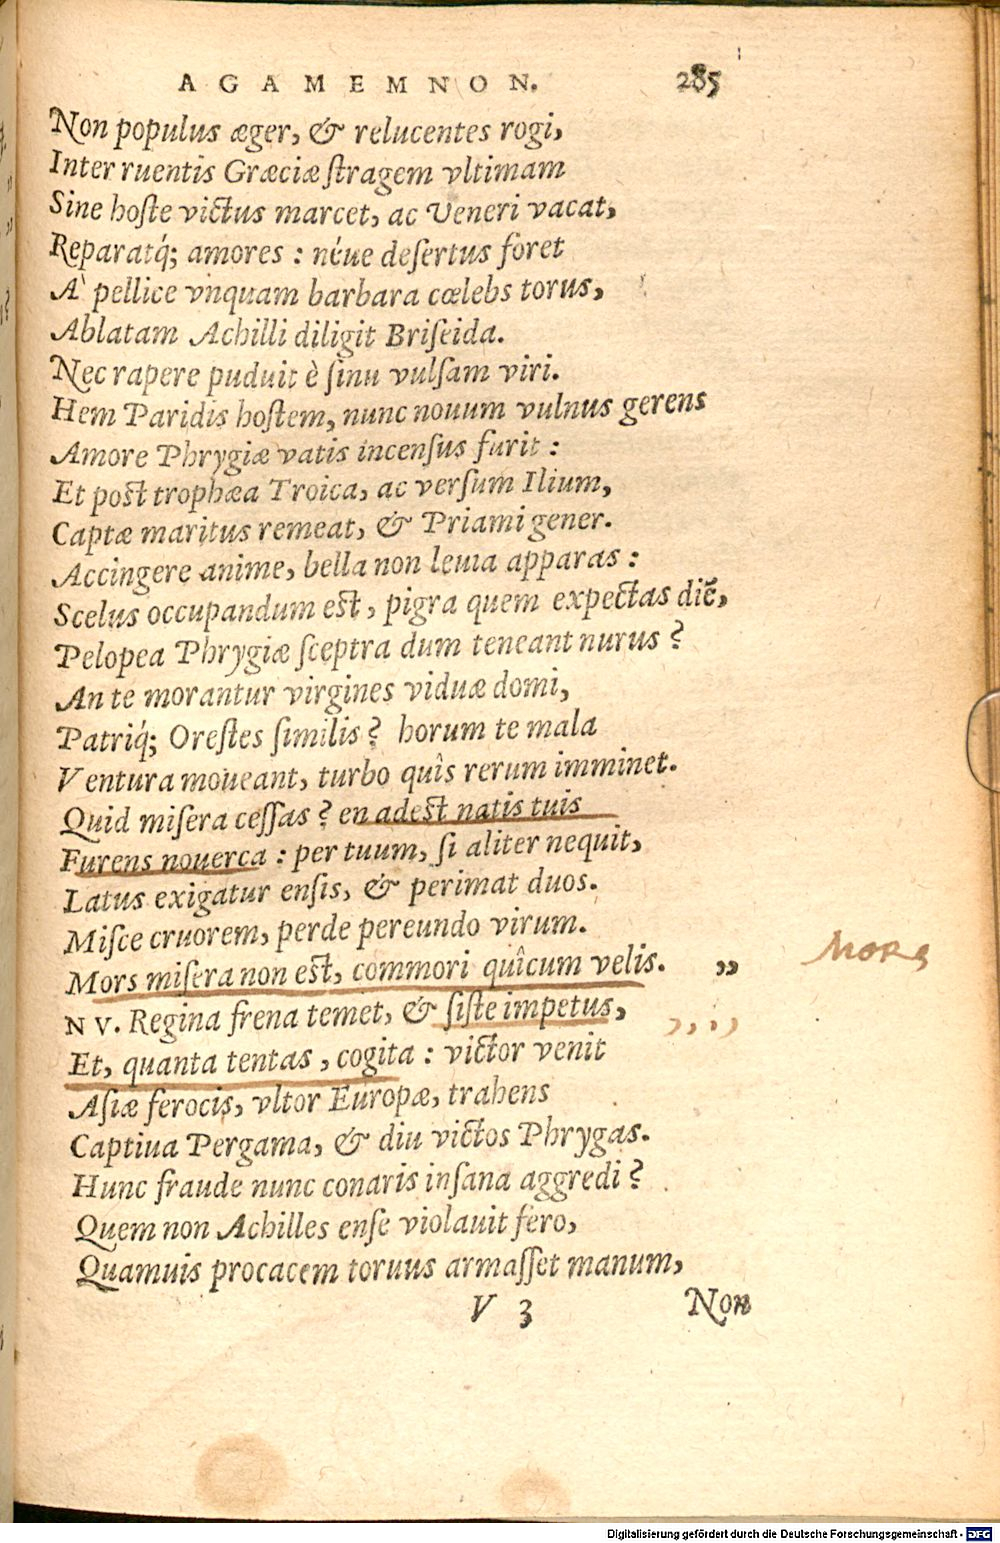 AGAMEMNON. 285
Non populus æger, & relucentes rogi,
Inter ruentis Græciæ ſtragem vltimam
Sine hoſte victus marcet, ac Veneri vacat,
Reparatq́; amores : néue deſertus foret
A' pellice vnquam barbara cœlebs torus,
Ablatam Achilli diligit Briſeida.
Nec rapere puduit è ſinu vulſam viri.
Hem Paridis hoſtem, nunc nouum vulnus gerens
Amore Phrygiæ vatis incenſus furit :
Et poſt trophæa Troica, ac verſum Ilium,
Captæ maritus remeat, & Priami gener.
Accingere anime, bella non leuia apparas :
Scelus occupandum eſt, pigra quem expectas diē,
Pelopea Phrygiæ ſceptra dum teneant nurus ?
An te morantur virgines viduæ domi,
Patriq́; Oreſtes ſimilis ? horum te mala
Ventura moueant, turbo quîs rerum imminet.
Quid miſera ceſſas ? en adeſt natis tuis
Furens nouerca : per tuum, ſi aliter nequit,
Latus exigatur enſis, & perimat duos.
Miſce cruorem, perde pereundo virum.
Mors miſera non eſt, commori quîcum velis. ,, Mors
NV. Regina frena temet, & ſiſte impetus, ,,,,
Et, quanta tentas, cogita : victor venit
Aſiæ ferocis, vltor Europæ, trahens
Captiua Pergama, & diu victos Phrygas.
Hunc fraude nunc conaris inſana aggredi ?
Quem non Achilles enſe violauit fero,
Quamuis procacem toruus armaſſet manum,
V 3 Non
Digitalisierung gefördert durch die Deutsche Forschungsgemeinschaft - DFG